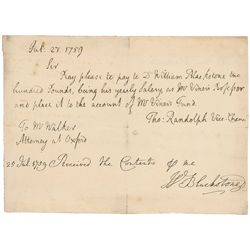 Jul. 27. 1759
Sir
Pray please to pay to Dr William Blackstone one
hundred Pounds, being his yearly Salary as Mr Viner's Professor
and place it to the account of Mr Viner's Fund.
Tho: Randolph Vice-Chanc
To Mr Walker
Attorney at Oxford
Jul. 1759 Received the Contents by me
W Blackstone